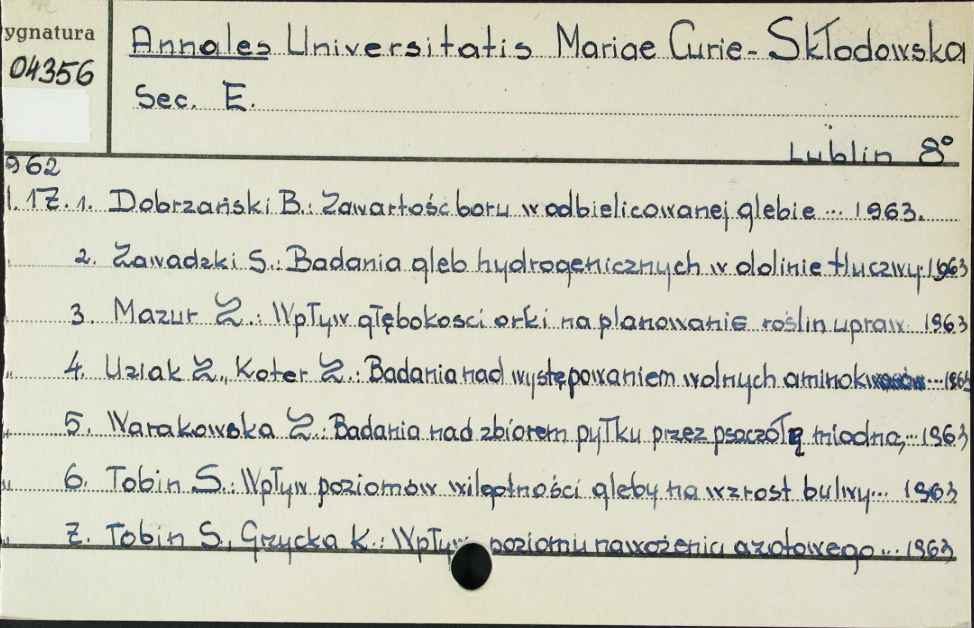 ygnatura
04356
Annales Universitatis Mariae Curie-Skłodowska
Sec. E.
Lublin 8°
962
1. 17. 1. Dobrzański B.: Zawartość boru w odbielicowanej glebie ... 1963.
2. Zawadzki S.: Badania gleb hydrogenicznych w dolinie tłuczwy. 1963
3. Mazur Z.: Wpływ głębokosci orki na planowanie roślin upraw. 1963
" 4. Uziak Z., Koter Z.: Badania nad występowaniem wolnych aminokwasów ... 1963
" 5. Warakowska Z.: Badania nad zbiorem pyłku przez psaczółę miodną ... 1963
" 6. Tobin S.: Wpływ poziomów wilgotności gleby na wzrost bulwy ... 1963
" 7. Tobin S., Grzycka K.: Wpływ poziomu nawożenia azotowego ... 1963